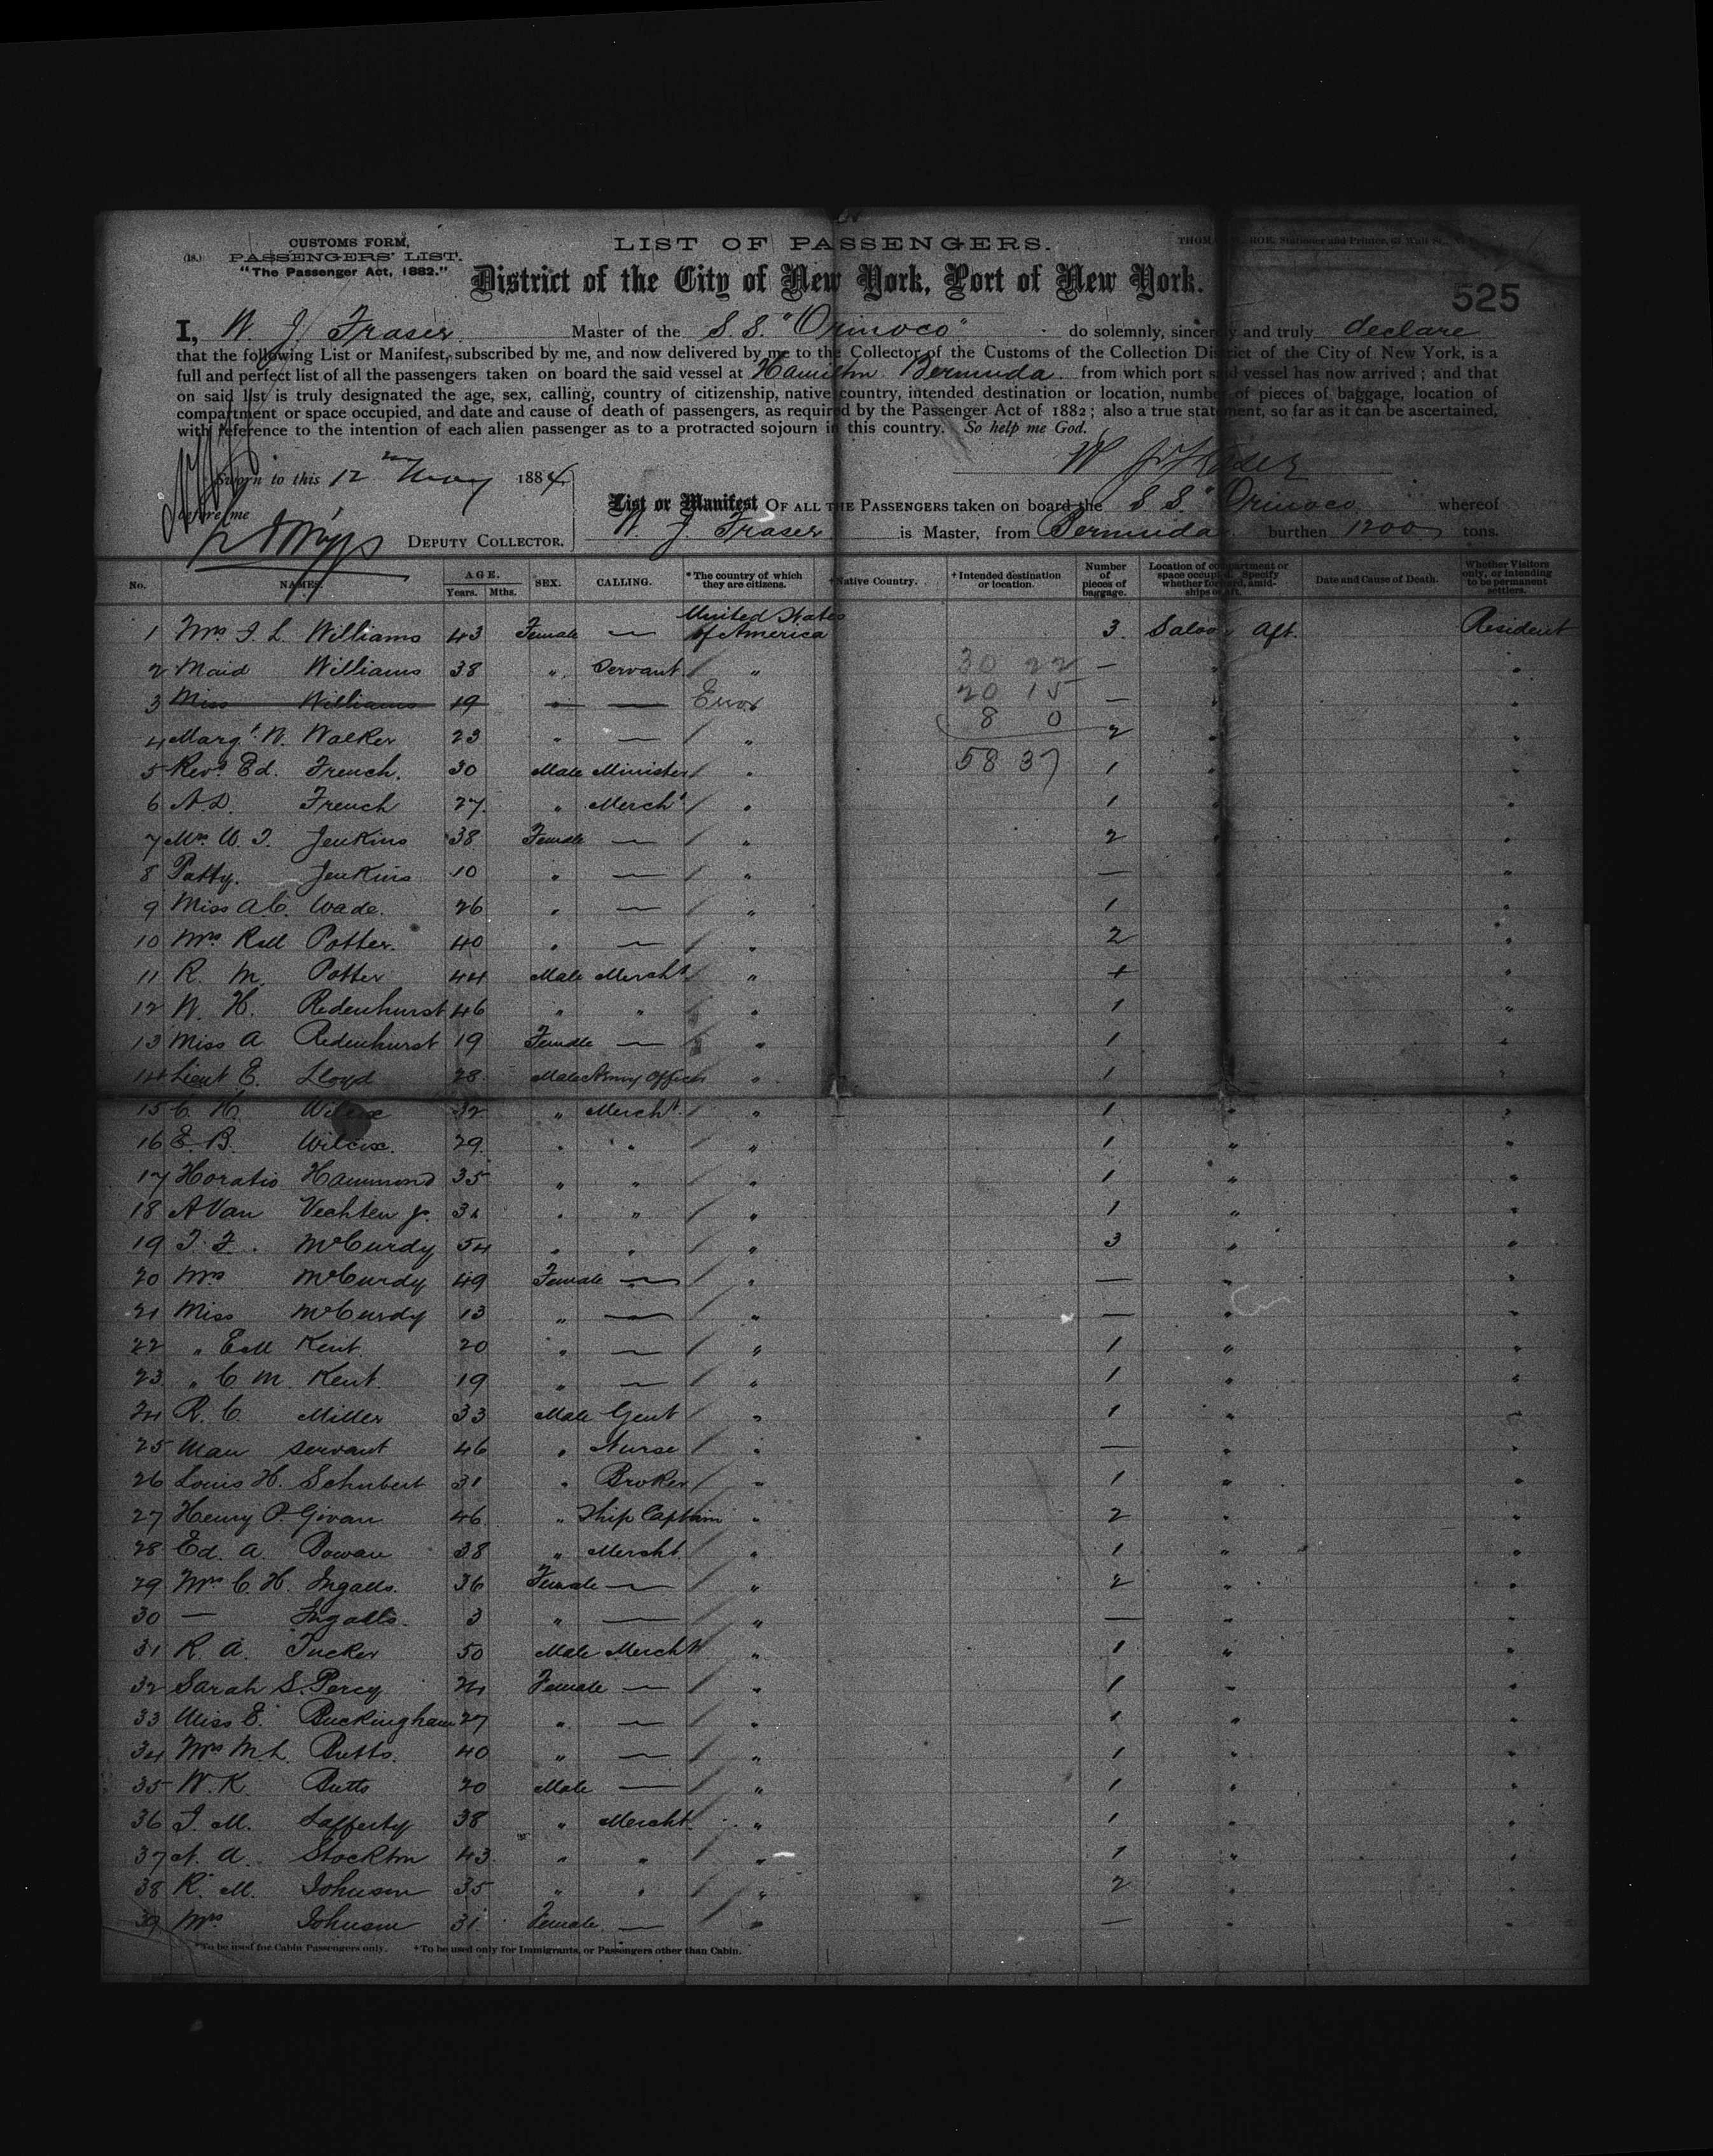 CUSTOMS FORM,
(18.) PASSENGERS' LIST.
"The Passenger Act, 1882."
LIST OF PASSENGERS.
Stationer and Printer, 61 Wall St.,
District of the City of New York, Port of New York.
525
I, W. J. Fraser Master of the S.S. "Orinoco" do solemnly, sincerely and truly declare
that the following List or Manifest, subscribed by me, and now delivered by me to the Collector of the Customs of the Collection District of the City of New York, is a
full and perfect list of all the passengers taken on board the said vessel at Hamilton Bermuda from which port said vessel has now arrived; and that
on said list is truly designated the age, sex, calling, country of citizenship, native country, intended destination or location, number of pieces of baggage, location of
compartment or space occupied, and date and cause of death of passengers, as required by the Passenger Act of 1882; also a true statement, so far as it can be ascertained,
with reference to the intention of each alien passenger as to a protracted sojourn in this country. So help me God.
W J Fraser
Sworn to this 12 May 1884
before me
DEPUTY COLLECTOR.
List or Manifest OF ALL THE PASSENGERS taken on board the S S. "Orinoco" whereof
W. J. Fraser is Master, from Bermuda burthen 1200 tons.
No. NAMES. AGE. Years. Mths. SEX. CALLING. *The country of which they are citizens. †Native Country. †Intended destination or location. Number of pieces of baggage. Location of compartment or space occupied. Specify whether forward, amidships or aft. Date and Cause of Death. Whether Visitors only, or intending to be permanent settlers.
1 Mrs J. L. Williams 43 Female — United States of America 3. Saloon Aft. Resident
2 Maid Williams 38 " Servant " 30 22 — " "
3 Miss Williams 19 " — Error 20 15 — "
8 0
4 Margt. W. Walker 23 " — " 2 " "
5 Revd. Ed. French. 30 Male Minister " 58 37 1 " "
6 A D. French 27. " Mercht " 1 " "
7 Mrs W. I. Jenkins 38 Female — " 2 " "
8 Patty. Jenkins 10 " — " — "
9 Miss A.C. Wade. 26 " — " 1 "
10 Mrs Rall Potter. 40 " — " 2 "
11 R. M. Potter 44 Male Mercht " "
12 W. H. Redenhurst 46 " " " 1 "
13 Miss A Redenhurst 19 Female — " 1 "
14 Lieut E. Lloyd 28 Male Army Officer " 1 "
15 C. H. Wilcox 32 " Mercht. " 1 " "
16 E. B. Wilcox. 29. " " " 1 " "
17 Horatio Hammond 35 " " " 1 " "
18 A Van Vechten Jr. " " " 1 " "
19 McCurdy 54 " " " 3 " "
20 Mrs McCurdy 49 Female — " — " "
21 Miss McCurdy 13 " — " — " "
22 " Kent. 20 " — " 1 " "
23. " C M. Kent. 19 " — " 1 " "
24 R. C. Miller 33 Male Gent " 1 " "
25 Man servant 46 " Nurse " — " "
26 Louis H. Schubert 31 " Broker " 1 " "
27 Henry P. Givan 46 " Ship Captain " 2 " "
28 Ed. A. Bowan 38 " Mercht. " 1 " "
29 Mrs C. H. Ingalls. 36 Female — " 2 " "
30 — Ingalls. 3 " — " — " "
31 R. A. Tucker 50 Male Mercht " 1 " "
32 Sarah S. Percy 24 Female — " 1 " "
33 Miss E. Buckingham 27 " — " 1 " "
34 Mrs M.L. Butts. 40 " — " 1 " "
35 W. K. Butts 20 Male — " 1 " "
36 J. M. Lafferty 38 " Mercht. " 1 " "
37 A. Stockton 43 " " " 1 " "
38 R. M. Johnson 35 " " " 2 " "
39 Mrs Johnson 31 Female. — " — " "
*To be used for Cabin Passengers only. †To be used only for Immigrants, or Passengers other than Cabin.